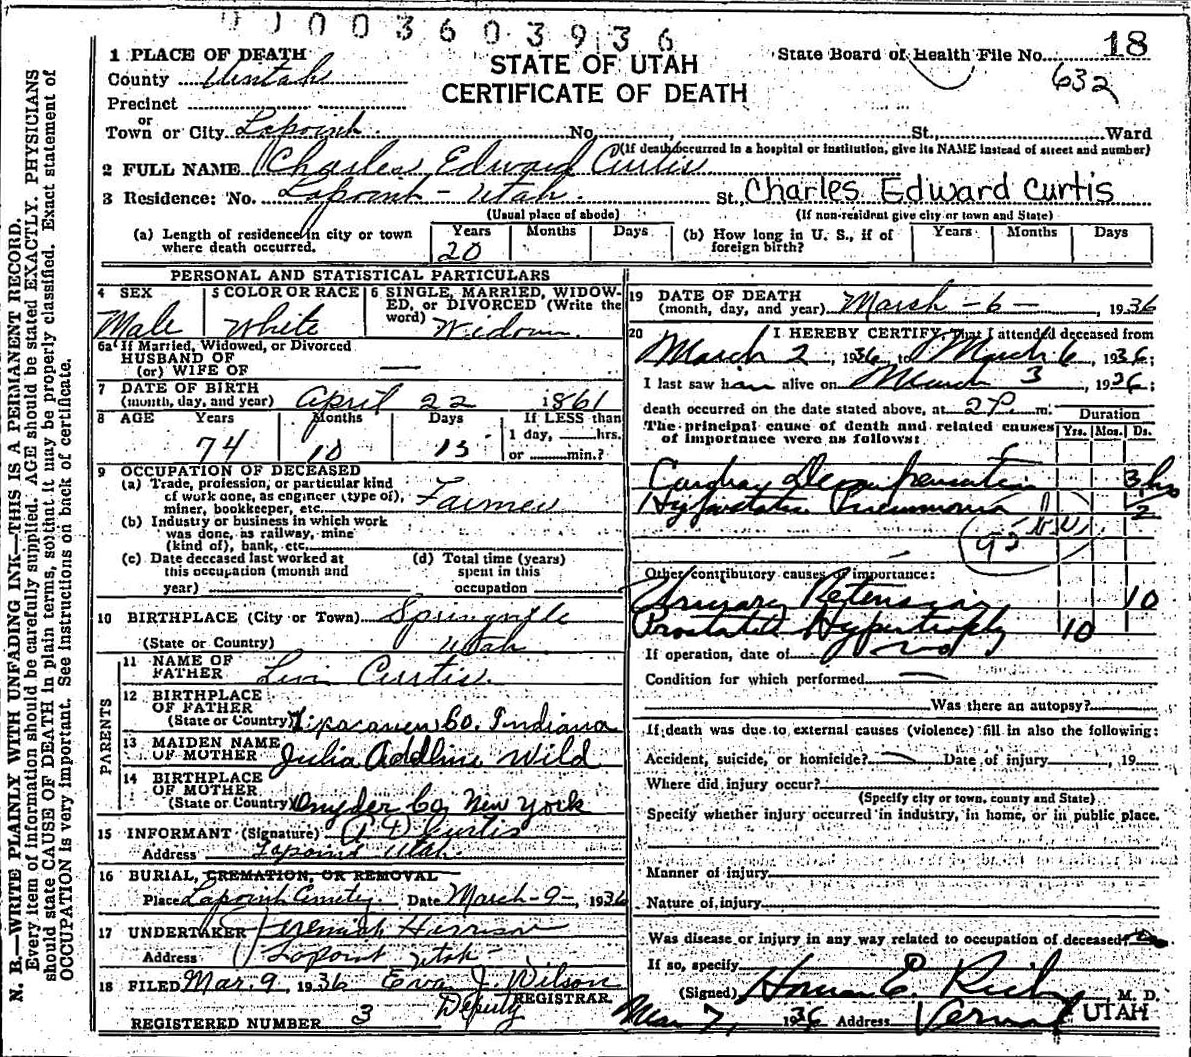 0100360 3936
18
1 PLACE OF DEATH
STATE OF UTAH
State Board of Health File No.
632
County Uintah
CERTIFICATE OF DEATH
Precinct
or
Town or City Lapoint No. St. Ward
(If death occurred in a hospital or institution, give its NAME instead of street and number)
2 FULL NAME Charles Edward Curtis
3 Residence: No. Lapoint - Utah. St. Charles Edward Curtis
(Usual place of abode) (If non-resident give city or town and State)
(a) Length of residence in city or town where death occurred. Years 20 Months Days
(b) How long in U. S., if of foreign birth? Years Months Days
PERSONAL AND STATISTICAL PARTICULARS
4 SEX Male
5 COLOR OR RACE White
6 SINGLE, MARRIED, WIDOWED, or DIVORCED (Write the word)
6a If Married, Widowed, or Divorced
HUSBAND OF
(or) WIFE OF —
7 DATE OF BIRTH
(month, day, and year) April 22 1861
8 AGE Years Months Days If LESS than
74 10 13 1 day, hrs.
or min.?
9 OCCUPATION OF DECEASED
(a) Trade, profession, or particular kind
of work done, as engineer (type of),
miner, bookkeeper, etc. Farmer
(b) Industry or business in which work
was done, as railway, mine
(kind of), bank, etc.
(c) Date deceased last worked at
this occupation (month and
year)
(d) Total time (years)
spent in this
occupation
10 BIRTHPLACE (City or Town) Springville
(State or Country) Utah
PARENTS
11 NAME OF
FATHER Levi Curtis.
12 BIRTHPLACE
OF FATHER
(State or Country) Co. Indiana
13 MAIDEN NAME
OF MOTHER Julia Addline Wild
14 BIRTHPLACE
OF MOTHER
(State or Country) Onyder Co. New York
15 INFORMANT (Signature) Curtis
Address Lapoint Utah.
16 BURIAL, CREMATION, OR REMOVAL
Place Lapoint Cemetery Date March-9-, 1936
17 UNDERTAKER Jeremiah Harrison
Address Lapoint Utah-
18 FILED Mar. 9, 1936 Eva J. Wilson
Deputy REGISTRAR.
REGISTERED NUMBER 3
19 DATE OF DEATH
(month, day, and year) March-6-, 1936
20 I HEREBY CERTIFY, That I attended deceased from
March 2, 1936, to March 6, 1936;
I last saw him alive on March 3, 1936;
death occurred on the date stated above, at 2 P. m.
Duration
The principal cause of death and related causes
of importance were as follows:
Yrs. Mos. Ds.
Cardiac Decompensation 3
Hypostatic Pneumonia 2
95
Other contributory causes of importance:
Urinary Retension 10
Prostatic Hypertrophy 10
If operation, date of no
Condition for which performed —
Was there an autopsy?
If death was due to external causes (violence) fill in also the following:
Accident, suicide, or homicide? — Date of injury , 19
Where did injury occur?
(Specify city or town, county and State)
Specify whether injury occurred in industry, in home, or in public place.
Manner of injury
Nature of injury
Was disease or injury in any way related to occupation of deceased?
If so, specify
(Signed) Homer E. Rich M. D.
Mar 7, 1936 Address Vernal UTAH
N. B.—WRITE PLAINLY WITH UNFADING INK—THIS IS A PERMANENT RECORD.
Every item of information should be carefully supplied. AGE should be stated EXACTLY. PHYSICIANS
should state CAUSE OF DEATH in plain terms, so that it may be properly classified. Exact statement of
OCCUPATION is very important. See instructions on back of certificate.